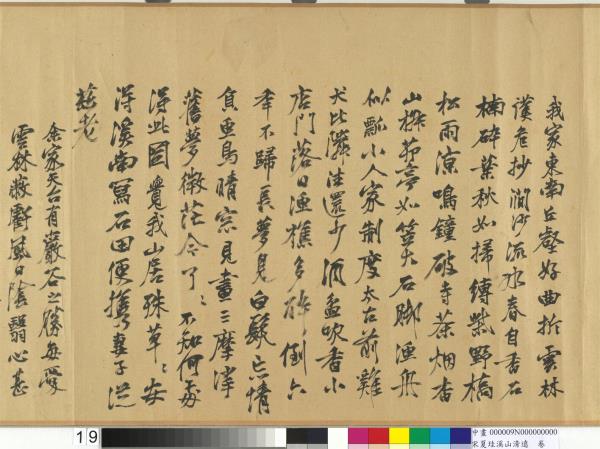 我家東南丘壑好曲折雲林
護危抄澗沙流水春自香石
楠碎葉秋如掃縛柴野橋
松雨涼鳴鐘破寺茶烟香
山茆亭如笠大石脚漁舟
似瓢小人家制度太古前雞
犬比隣法還少酒盃吹香小
店門落日漁樵多醉倒六
年不歸長夢見白髮忘情
負魚鳥晴窓見畫三摩挲
舊夢微茫今了〻不知何處
得此圖覺我山居殊草〻安
得溪南寫石田便攜妻子從
茲老
余家天台有巖谷之勝每愛
雲林微斷風日陰翳心甚
19
中畫 000009N000000000
宋夏珪溪山清遠 卷